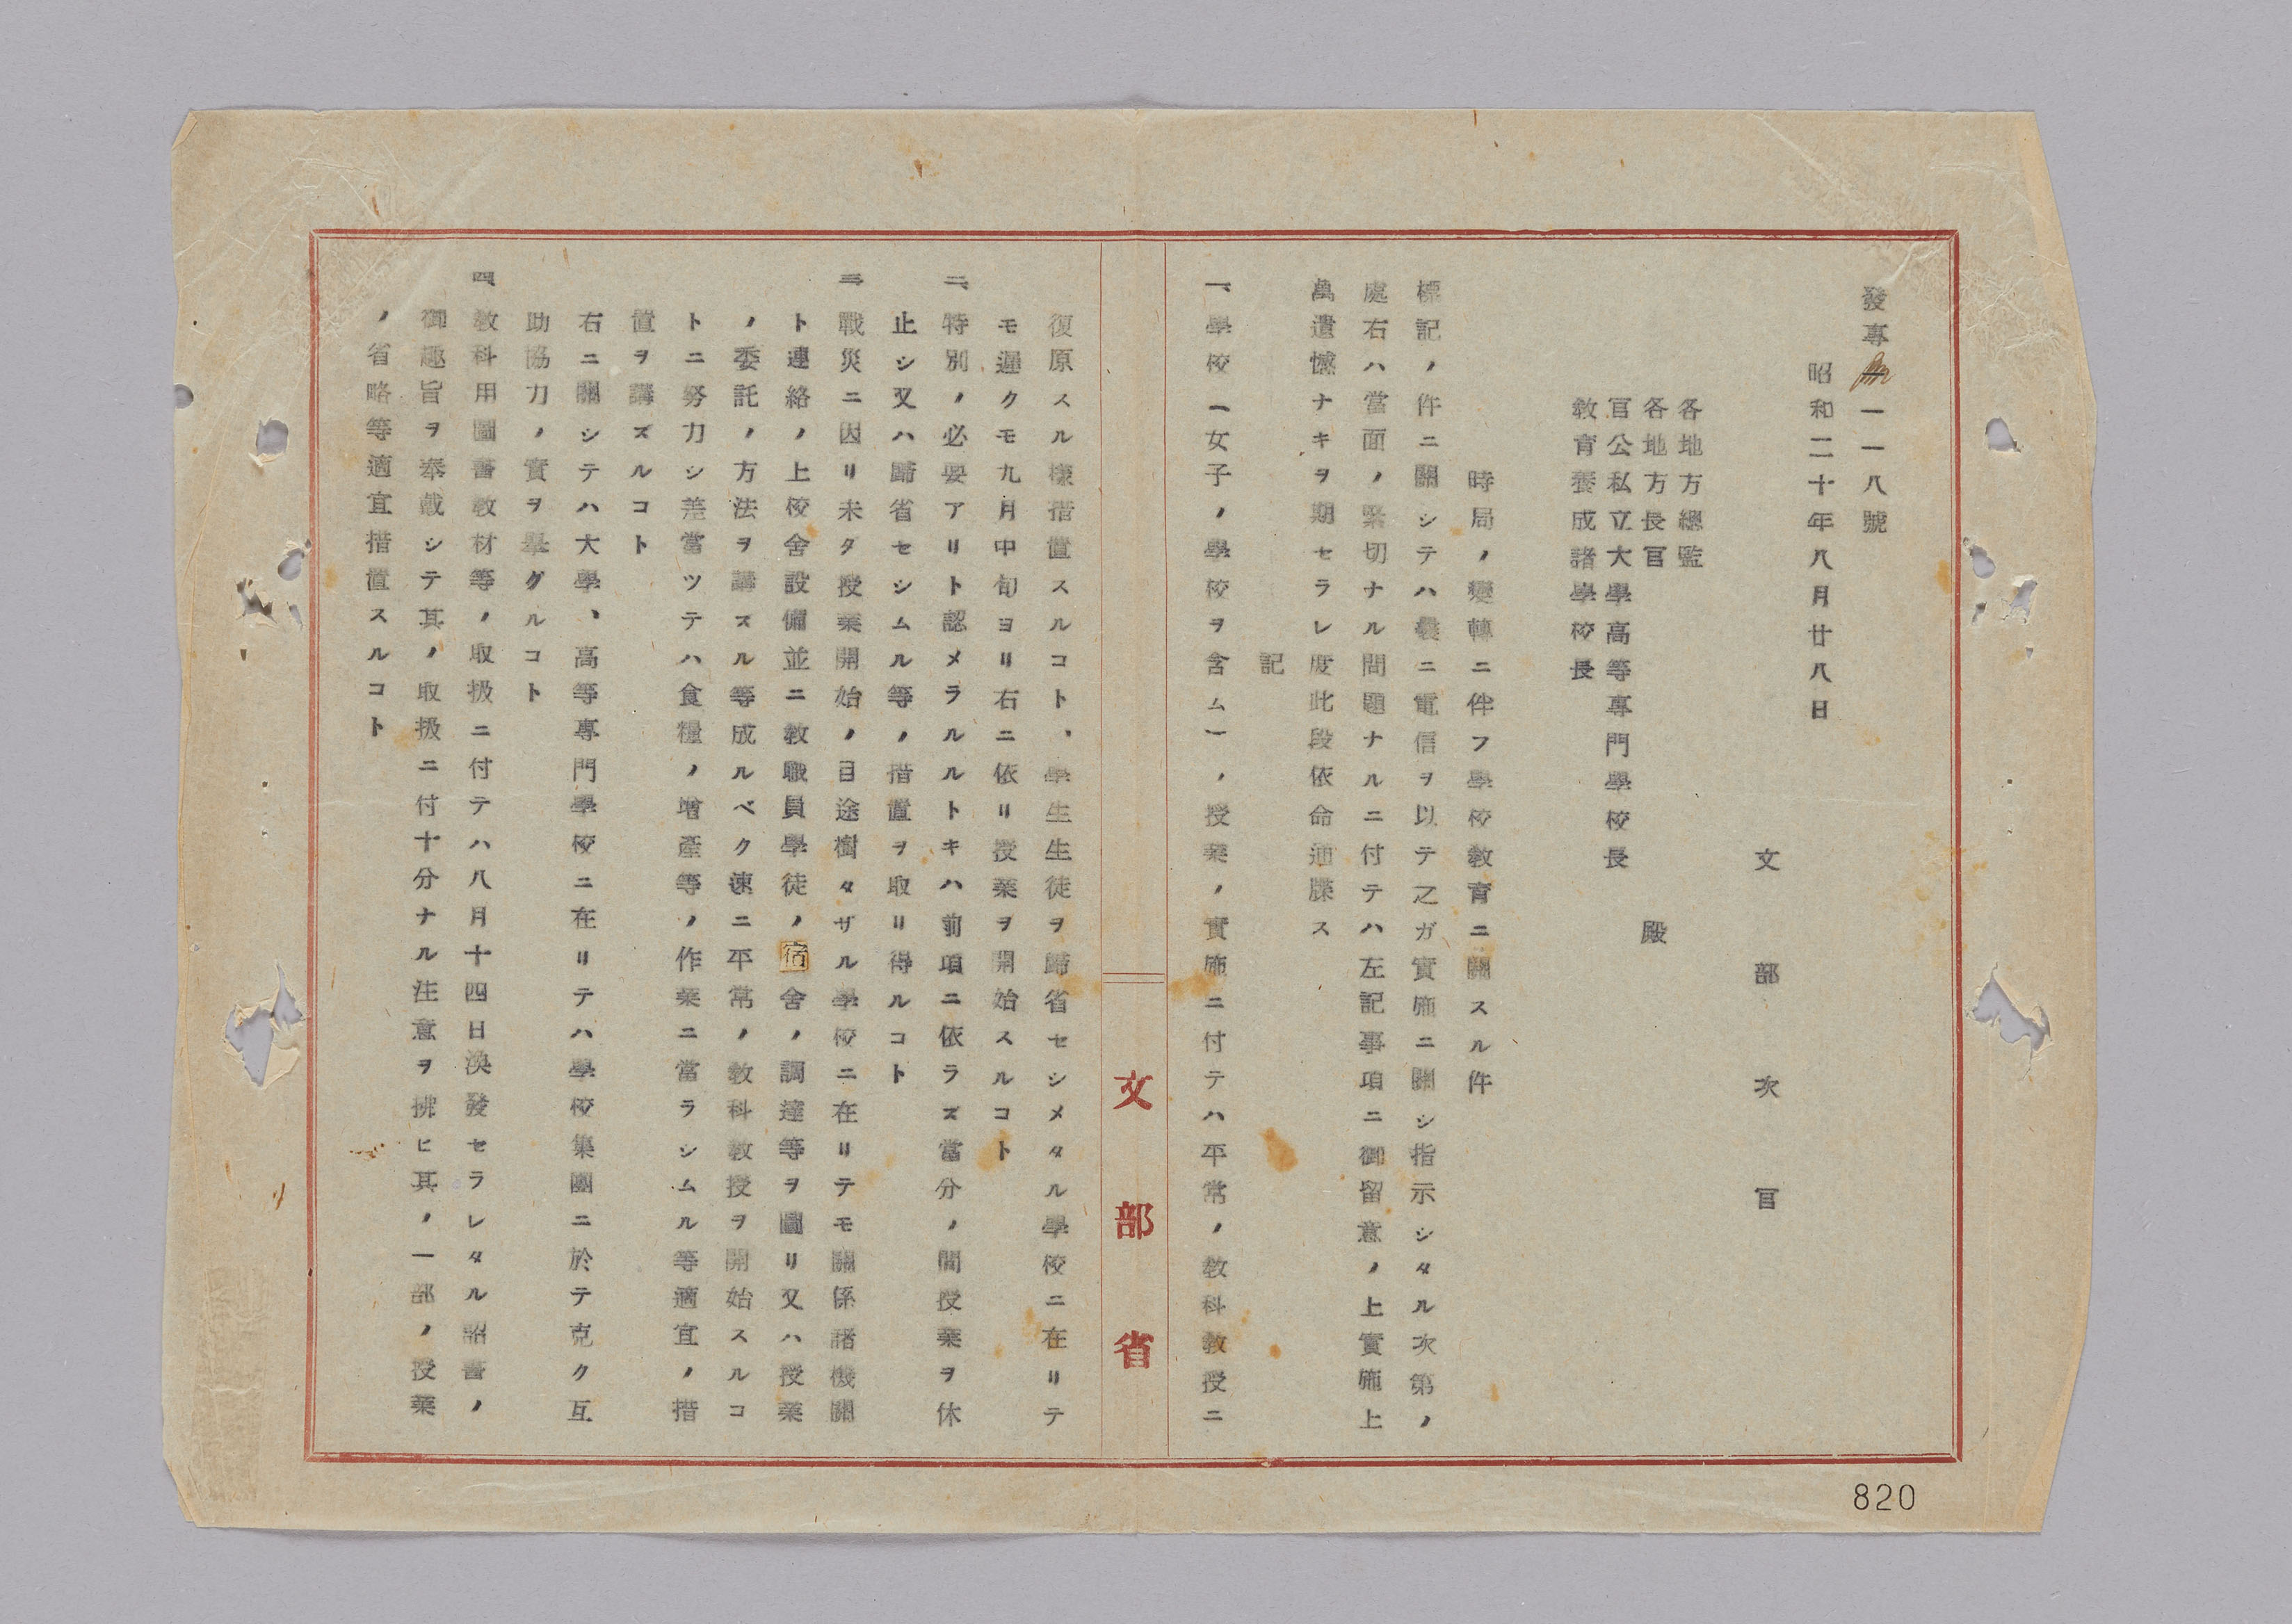 發專一一八號
昭和二十年八月廿八日
文部次官
各地方總監
各地方長官
官公私立大學高等專門學校長
教育養成諸學校長
殿
時局ノ變轉ニ伴フ學校教育ニ關スル件
標記ノ件ニ關シテハ曩ニ電信ヲ以テ之ガ實施ニ關シ指示シタル次第ノ
處右ハ當面ノ緊切ナル問題ナルニ付テハ左記事項ニ御留意ノ上實施上
萬遺憾ナキヲ期セラレ度此段依命通牒ス
記
一、學校(女子ノ學校ヲ含ム)ノ授業ノ實施ニ付テハ平常ノ教科教授ニ
文部省
復原スル樣措置スルコト、學生生徒ヲ歸省セシメタル學校ニ在リテ
モ遲クモ九月中旬ヨリ右ニ依リ授業ヲ開始スルコト
二、特別ノ必要アリト認メラルルトキハ前項ニ依ラズ當分ノ間授業ヲ休
止シ又ハ歸省セシムル等ノ措置ヲ取リ得ルコト
三、戰災ニ因リ未タ授業開始ノ目途樹タザル學校ニ在リテモ關係諸機關
ト連絡ノ上校舍設備並ニ教職員學徒ノ宿舍ノ調達等ヲ圖リ又ハ授業
ノ委託ノ方法ヲ講スル等成ルベク速ニ平常ノ教科教授ヲ開始スルコ
トニ努力シ差當ツテハ食糧ノ增產等ノ作業ニ當ラシムル等適宜ノ措
置ヲ講ズルコト
右ニ關シテハ大學、高等專門學校ニ在リテハ學校集團ニ於テ克ク互
助協力ノ實ヲ擧グルコト
四、教科用圖書教材等ノ取扱ニ付テハ八月十四日渙發セラレタル詔書ノ
御趣旨ヲ奉戴シテ其ノ取扱ニ付十分ナル注意ヲ拂ヒ其ノ一部ノ授業
ノ省略等適宜措置スルコト
820